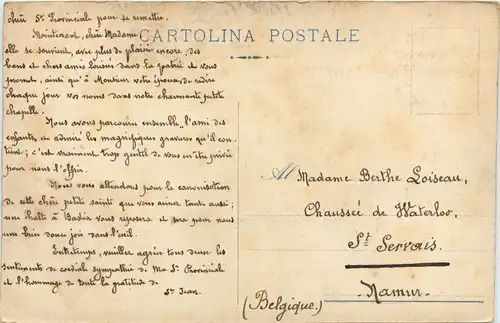 chère St. Provincial pour se remettre.
Maintenant, chère Madame,
elle se souvient, avec plus de plaisir encore, des
bons et chers amis laissés dans la patrie et vous
promet, ainsi qu'à Monsieur votre époux, de redire
chaque jour vos noms dans notre charmante petite
chapelle.
Nous avons parcouru ensemble l'ami des
enfants, et admiré les magnifiques gravures qu'il con-
tient; c'est vraiment trop gentil de vous en être privée
pour nous l'offrir.
Nous vous attendons pour la canonisation
de cette chère petite sainte que vous aimez tant aussi;
une halte à Badia vous reposera et sera pour nous
un bien doux jour dans l'exil.
Entretemps, veuillez agréer tous deux les
sentiments de cordiale sympathie de Ma St. Provinciale
et l'hommage de toute la gratitude de
St. Jean.
CARTOLINA POSTALE
A Madame Berthe Loiseau,
Chaussée de Waterloo,
St. Servais.
Namur.
(Belgique.)